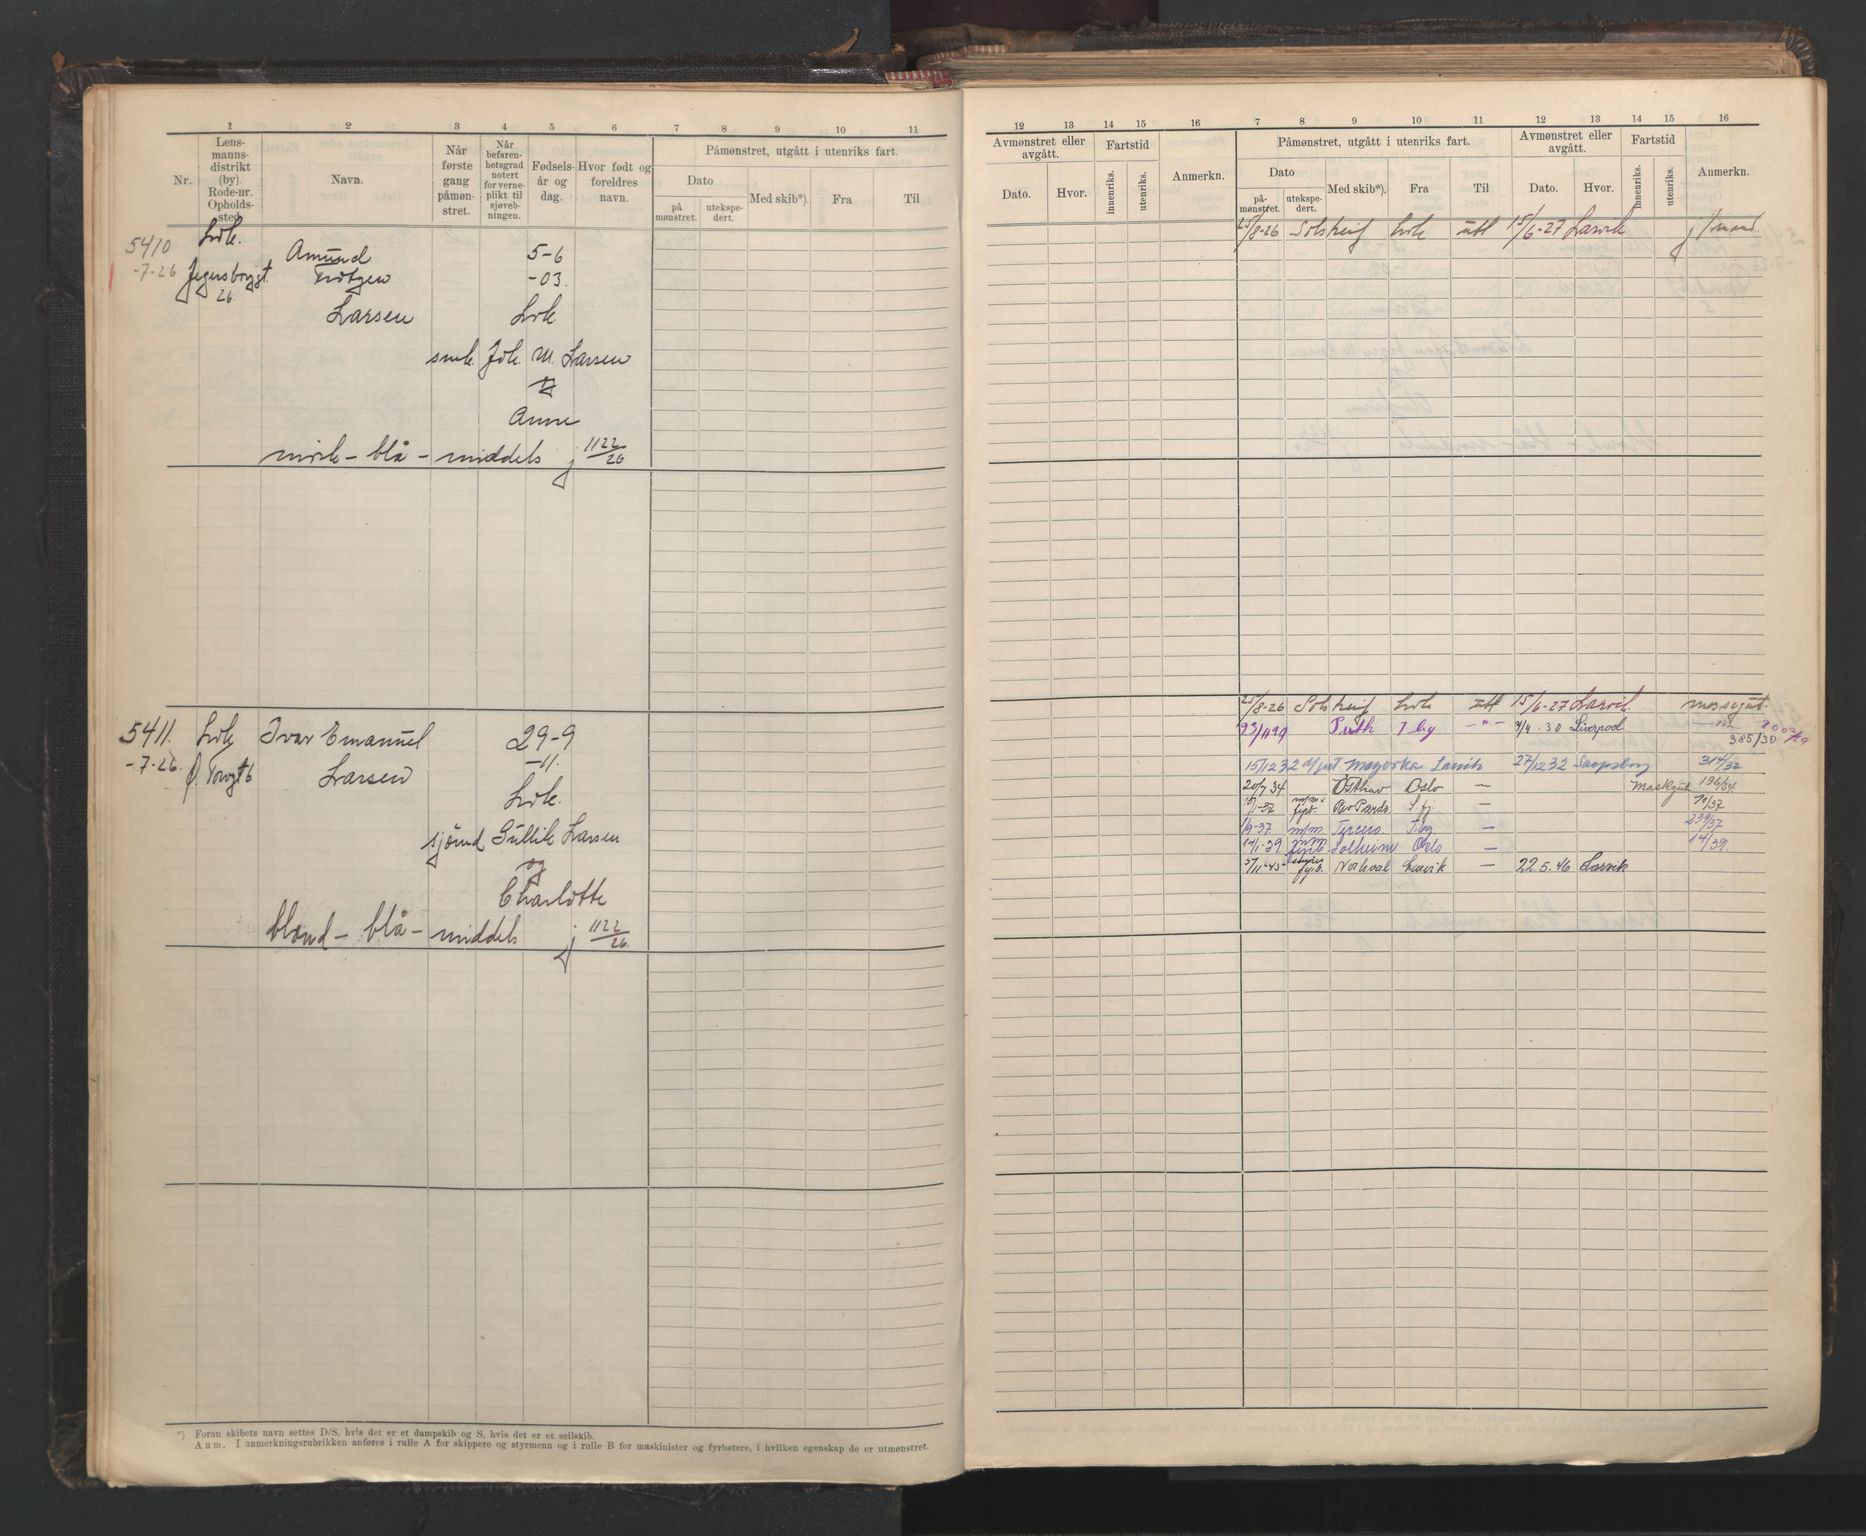 1 2 3 4 5 6 7 8 9 10 11
Nr.
Lens-
manns-
distrikt
(by).
Rode-nr.
Opholds-
sted.
Navn.
Når
første
gang
påmøn-
stret.
Når
befaren-
hetsgrad
notert
for verne-
plikt til
sjøveb-
ningen.
Fødsels-
år og
dag.
Hvor født og
foreldres
navn.
Påmønstret, utgått i utenriks fart.
Dato
på
mønstret.
utekspe-
dert.
Med skib*).
Fra
Til
5410
-7-26
Lvk.
Jegersborggt.
26.
Amund
Larsen
5-6
-03.
Lvk.
smk. Joh. M. Larsen
og
Anne
mörk - blå - middels j 1122/26
5411.
-7-26.
Lvk
Ö. Torvgt 6
Ivar Emanuel
Larsen
29-9
-11.
Lvk.
sjömd Gullik Larsen
og
Charlotte
blond - blå - middels j 1122/26.
*) Foran skibets navn settes D/S, hvis det er et dampskib og S, hvis det er et seilskib.
Anm. I anmerkningsrubrikken anføres i rulle A for skippere og styrmenn og i rulle B for maskinister og fyrbøtere, i hvilken egenskap de er utmønstret.
12 13 14 15 16 7 8 9 10 11 12 13 14 15 16
Avmønstret eller
avgått.
Dato.
Hvor.
Fartstid
innenriks.
utenriks.
Anmerkn.
Påmønstret, utgått i utenriks fart.
Dato
på-
mønstret.
utekspe-
dert.
Med skib*).
Fra
Til
Avmønstret eller
avgått.
Dato.
Hvor.
Fartstid
innenriks.
utenriks.
Anmerkn.
25/8-26 Solskin Lvk utl 15/6-27 Larvik j/mand.
25/8-26 Solskin Lvk utl 15/6-27 Larvik. messegut.
23/1129 Ruth T.bg -"- 4/4.30 Liverpool -"-
385/30
15/12 32 d/gut Mazurka Larvik 27/12 32 Sarpsborg 314/32
20/7 34 Østhav Oslo - Maskgut 196/34.
15/1-37 Rio Pardo S.fj. - 10/37
1/9-37 m/m. T.bg - 239/37
14/1-39 Solheim Oslo - 14/39.
5/11-45- fyrb. Norhval Larvik - 22.5.46 Larvik